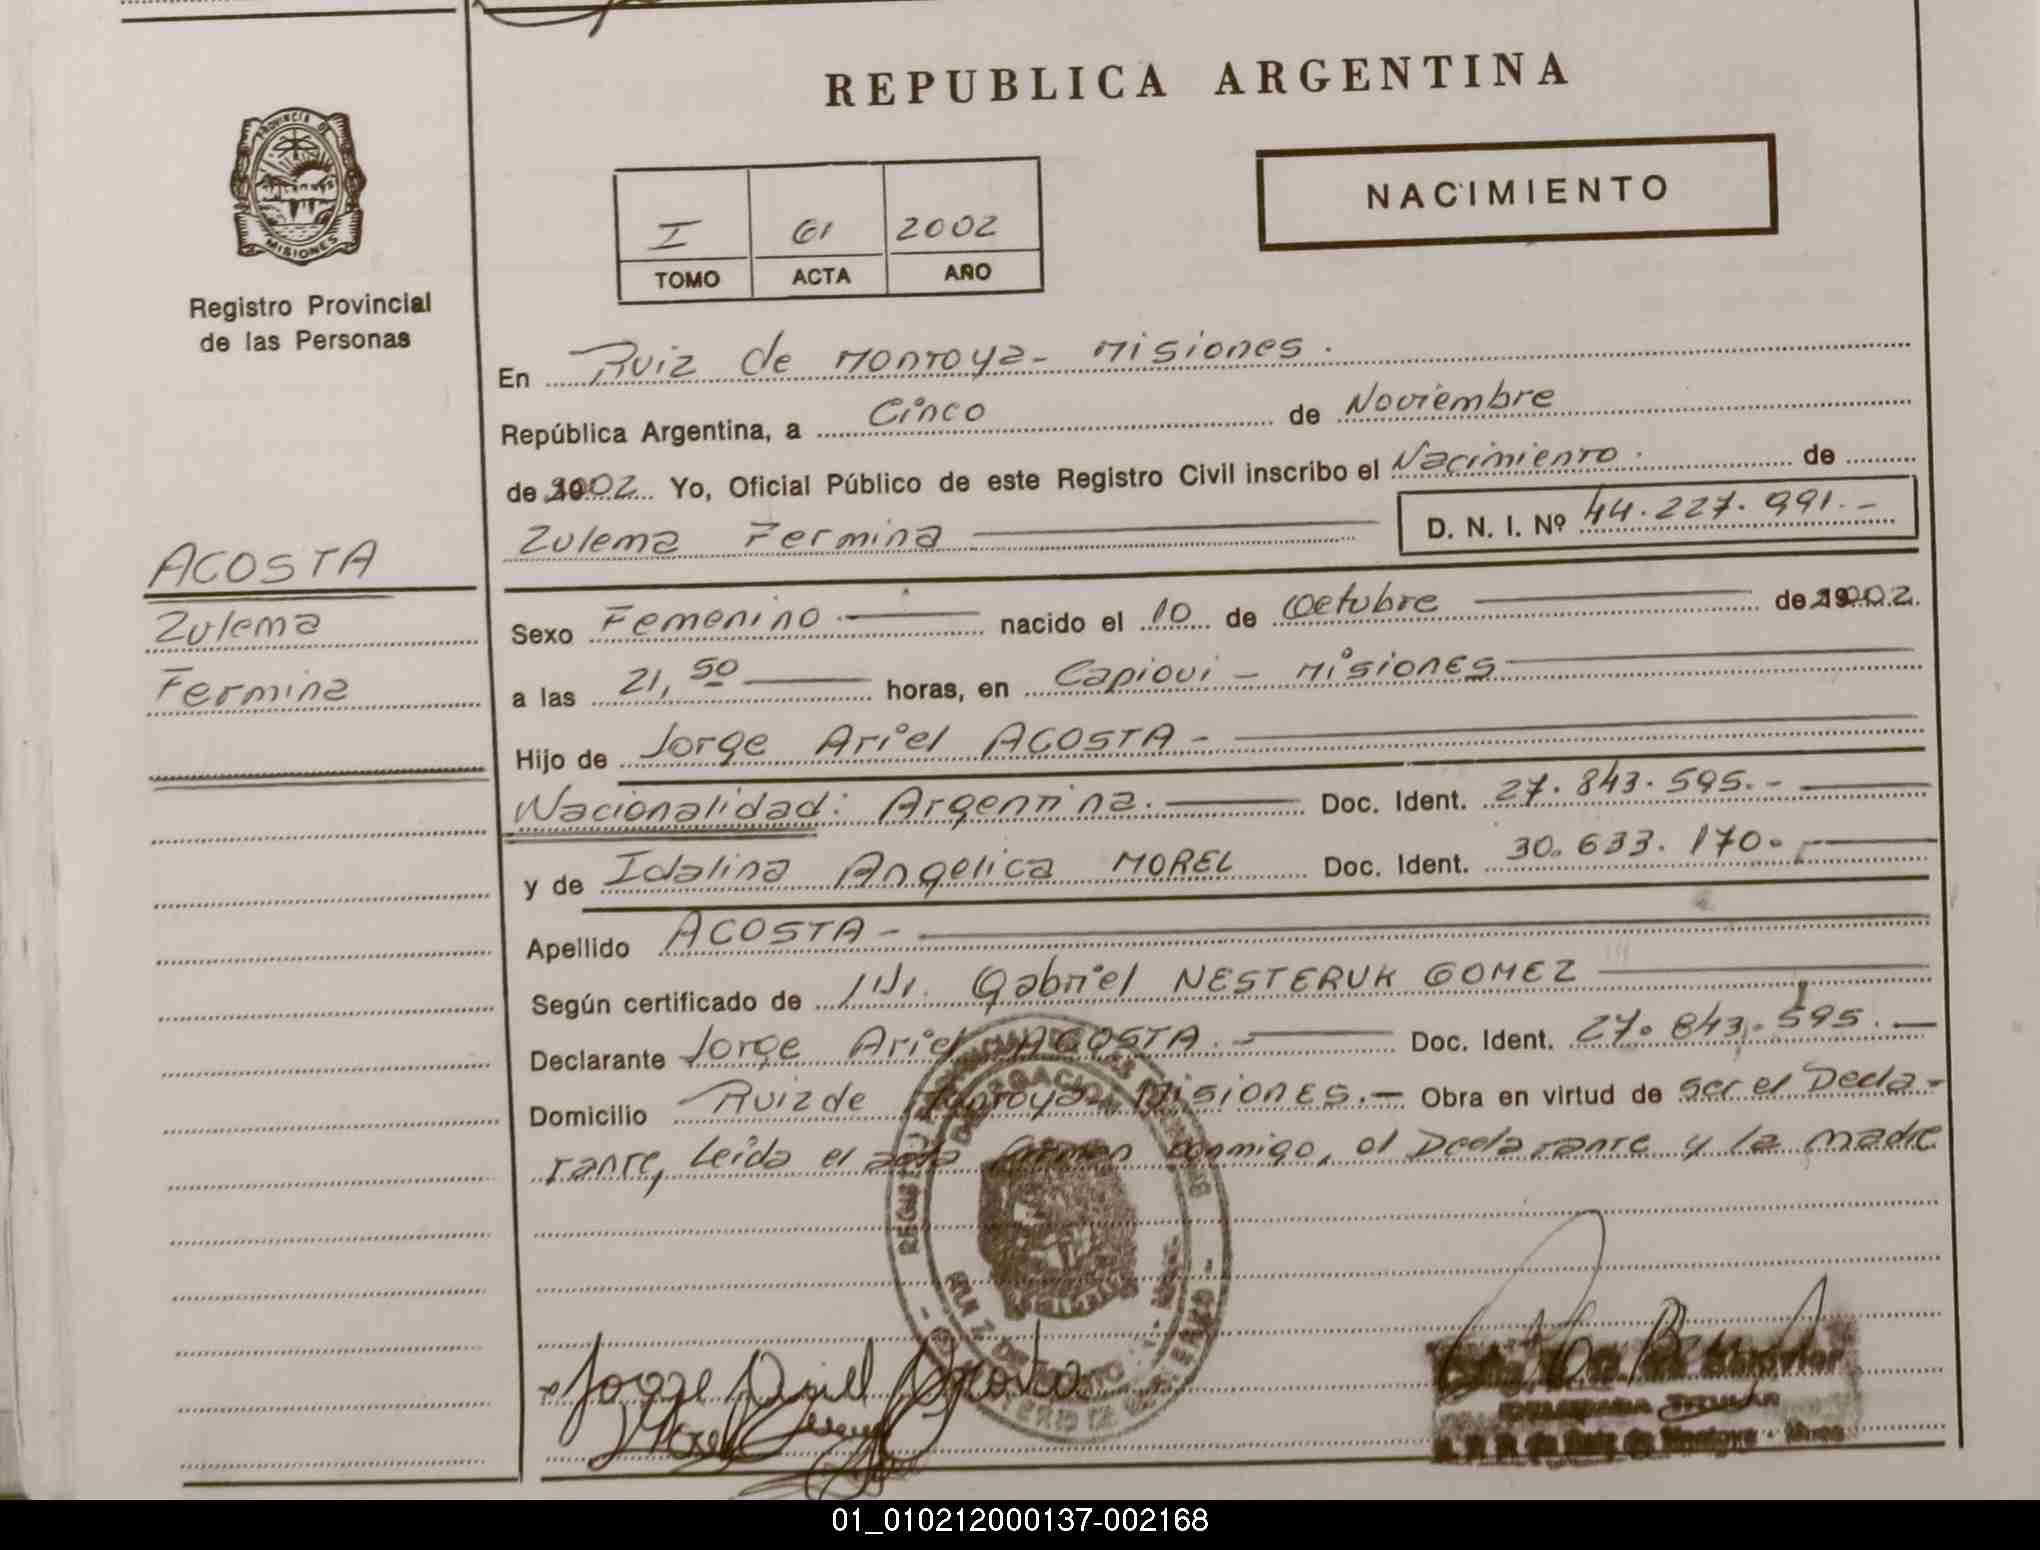 REPUBLICA ARGENTINA
PROVINCIA DE
MISIONES
Registro Provincial
de las Personas
NACIMIENTO
I 61 2002
TOMO ACTA AÑO
En Ruiz de Montoya - Misiones.
República Argentina, a Cinco de Noviembre
de 2002 Yo, Oficial Público de este Registro Civil inscribo el Nacimiento. de
Zulema Fermina D. N. I. Nº 44.227.991.-
ACOSTA
Zulema
Fermina
Sexo Femenino nacido el 10 de Octubre de 2002.
a las 21,50 horas, en Capiovi - Misiones
Hijo de Jorge Ariel ACOSTA -
Nacionalidad: Argentina. Doc. Ident. 27.843.595.-
y de Idalina Angelica MOREL Doc. Ident. 30.633.170.-
Apellido ACOSTA -
Según certificado de Gabriel NESTERUK GOMEZ
Declarante Jorge Ariel ACOSTA.- Doc. Ident. 27.843.595.-
Domicilio Ruiz de Montoya - Misiones.- Obra en virtud de ser el Decla-
rante, Leída el acta firman conmigo, el Declarante y la madre
Jorge Ariel Acosta
DELEGADA TITULAR
R. P. P. de Ruiz de Montoya - Mnes.
01_010212000137-002168